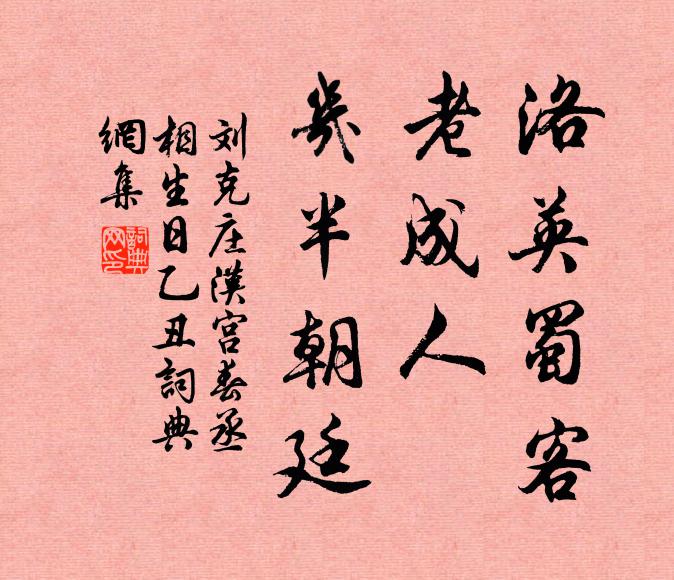 洛英蜀客
老成人
幾半朝廷
刘克庄漢宮春丞
相生日乙丑詞典
網集
詞典網印